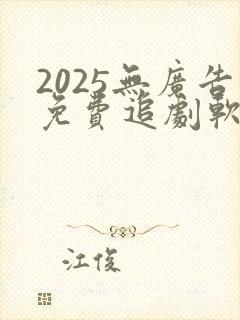 2025無廣告
免費追劇軟
江俊